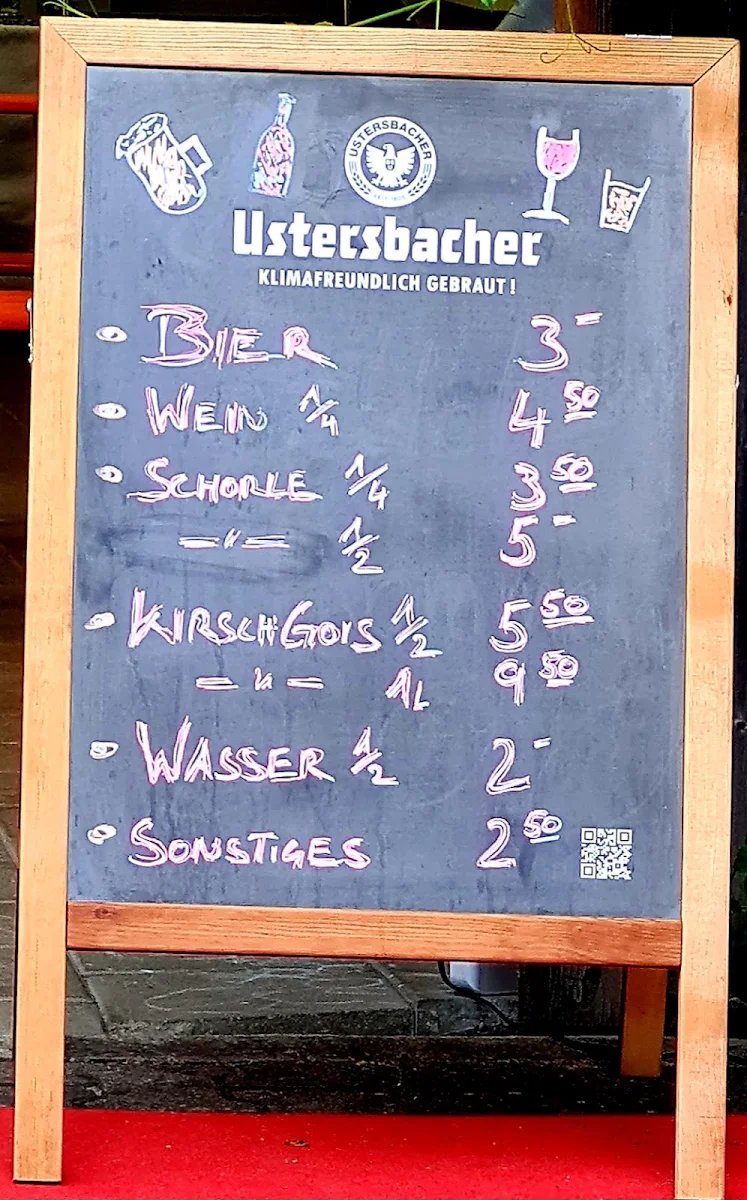 USTERSBACHER
Ustersbacher
KLIMAFREUNDLICH GEBRAUT!
• BIER 3 -
• WEIN 1/4 4 50
• SCHORLE 1/4 3 50
= " = 1/2 5 -
• KIRSCHGOIS 1/2 5 50
= " = 1L 9 50
• WASSER 1/2 2 -
• SONSTIGES 2 50